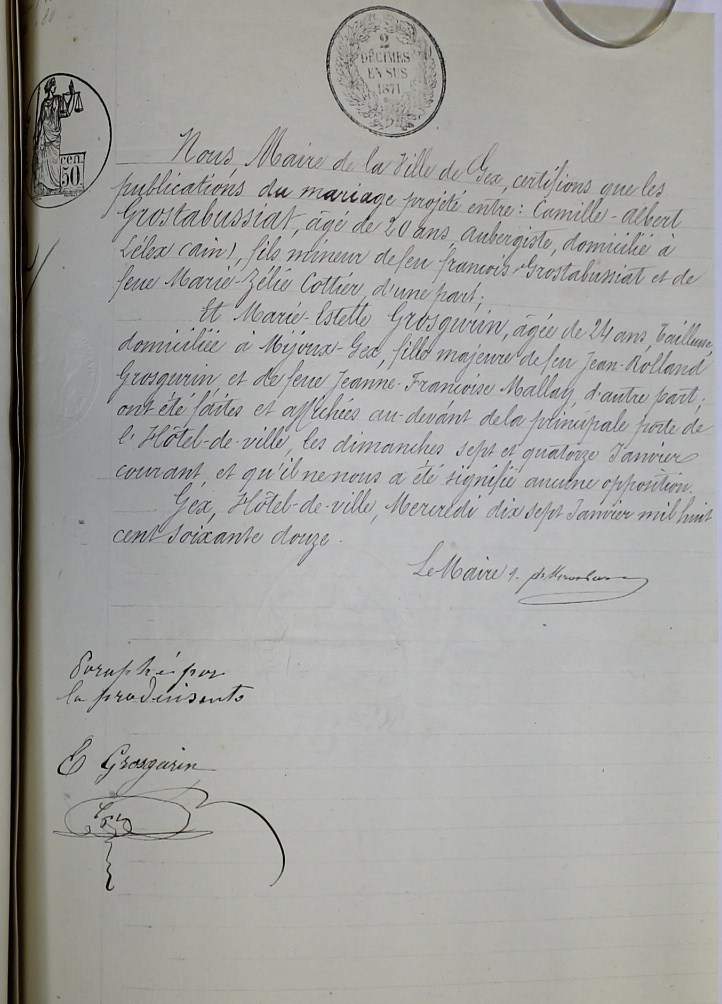 2
DÉCIMES
EN SUS
1871
cen.
50
Nous Maire de la Ville de Gex, certifions que les
publications du mariage projeté entre: Camille-Albert
Grostabussiat, âgé de 20 ans, aubergiste, domicilié à
Lélex (Ain), fils mineur de feu françois Grostabussiat et de
feue Marie-Zélie Cottier, d'une part;
Et Marie-Estelle Grosgurin, âgée de 24 ans, tailleuse
domiciliée à Mijoux-Gex, fille majeure de feu Jean-Rolland
Grosgurin, et de feue Jeanne-Françoise Mallay, d'autre part;
ont été faites et affichées au-devant de la principale porte de
l'Hôtel-de-ville, les dimanches sept et quatorze Janvier
courant, et qu'il ne nous a été signifié aucune opposition.
Gex, Hôtel-de-ville, Mercredi dix sept Janvier mil huit
cent soixante douze.
Le Maire
Paraphé par
la produisante
E Grosgurin